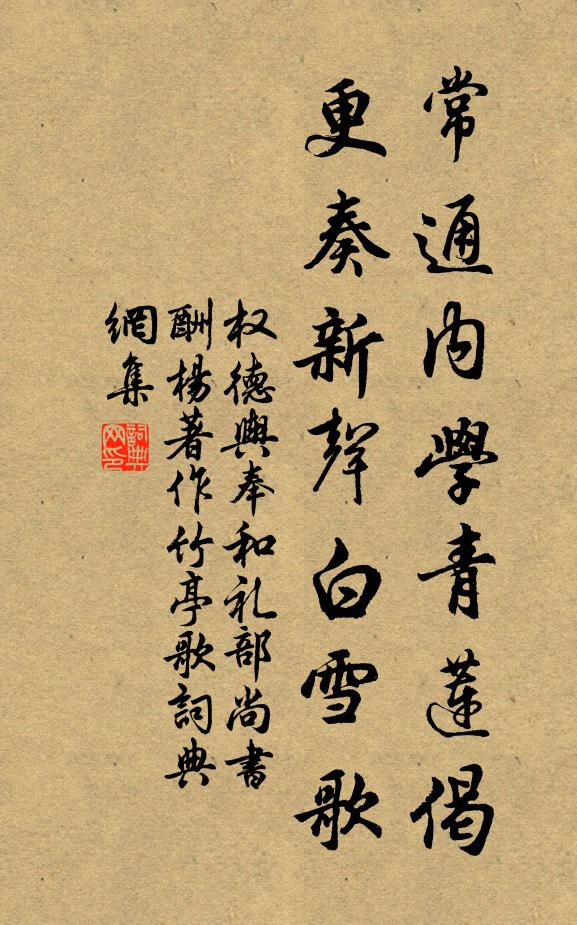 常通内學青蓮偈
更奏新聲白雪歌
权德輿奉和礼部尚書
酬楊著作竹亭歌詞典
網集
詞典網印